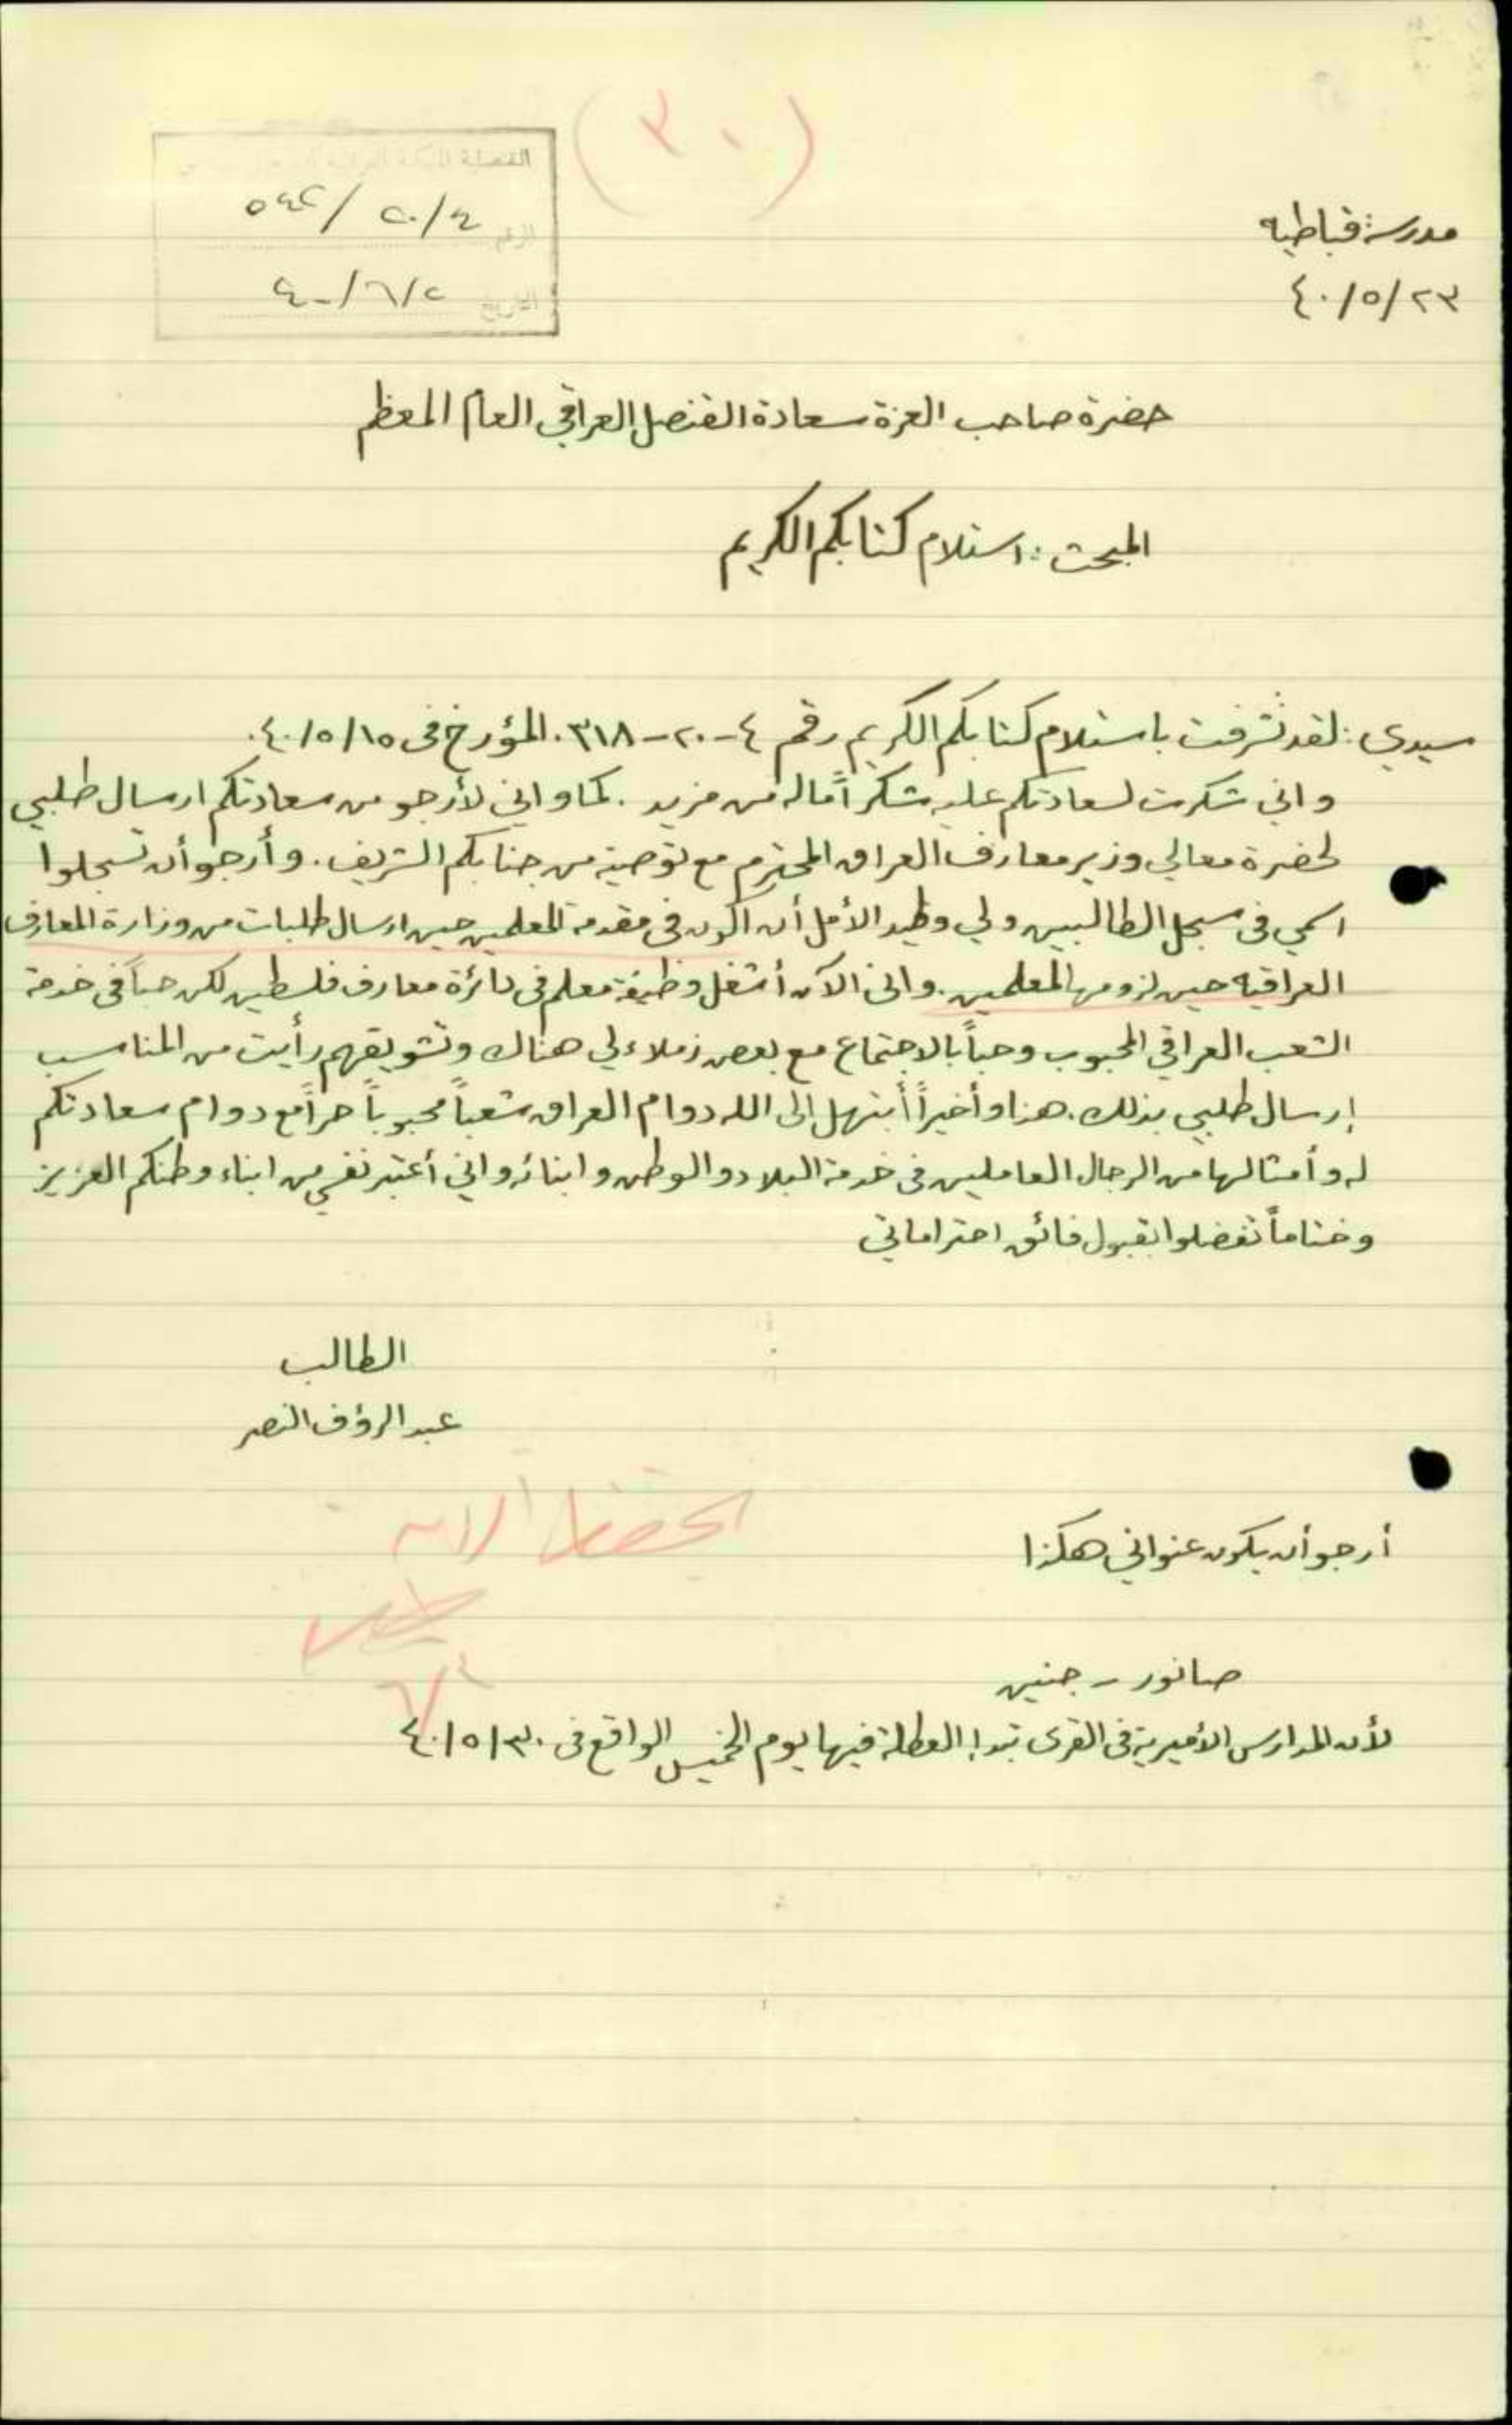 (٣٠)
القنصلية
الرقم ٥٤٢/ ٢٠/٤
التاريخ ٤٠/٦/٢
مدرسة قباطيه
٤٠/٥/٢٣
حضرة صاحب العزة سعادة القنصل العراقي العام المعظم
المبحث : استلام كتابكم الكريم
سيدي : لقد تشرفت باستلام كتابكم الكريم رقم ٤-٢٠-٣١٨. المؤرخ في ٤٠/٥/١٥.
واني شكرت لسعادتكم عليه شكراً ما له من مزيد . كما واني لأرجو من سعادتكم ارسال طلبي
لحضرة معالي وزير معارف العراق المحترم مع توصية من جنابكم الشريف . وأرجو أن تسجلوا
اسمي في سجل الطالبين ولي وطيد الأمل أن اكون في مقدمة المعلمين حين ارسال طلبات من وزارة المعارف
العراقيه حين لزومها المعلمين . واني الآن أشغل وظيفة معلم في دائرة معارف فلسطين لكن حباً في خدمة
الشعب العراقي المحبوب وحباً بالاجتماع مع بعض زملاء لي هناك وتشويقهم رأيت من المناسب
إرسال طلبي بذلك . هذا وأخيراً أبتهل الى الله دوام العراق شعباً محبوباً حراً مع دوام سعادتكم
له وأمثالها من الرجال العاملين في خدمة البلاد والوطن وابنائه واني أعتبر نفسي من ابناء وطنكم العزيز
وختاماً تفضلوا بقبول فائق احتراماتي
الطالب
عبد الرؤف النصر
أرجو أن يكون عنواني هكذا
صانور - جنين
لأن المدارس الأميرية في القرى تبدا العطلة فيها يوم الخميس الواقع في ٤٠/٥/٣٠